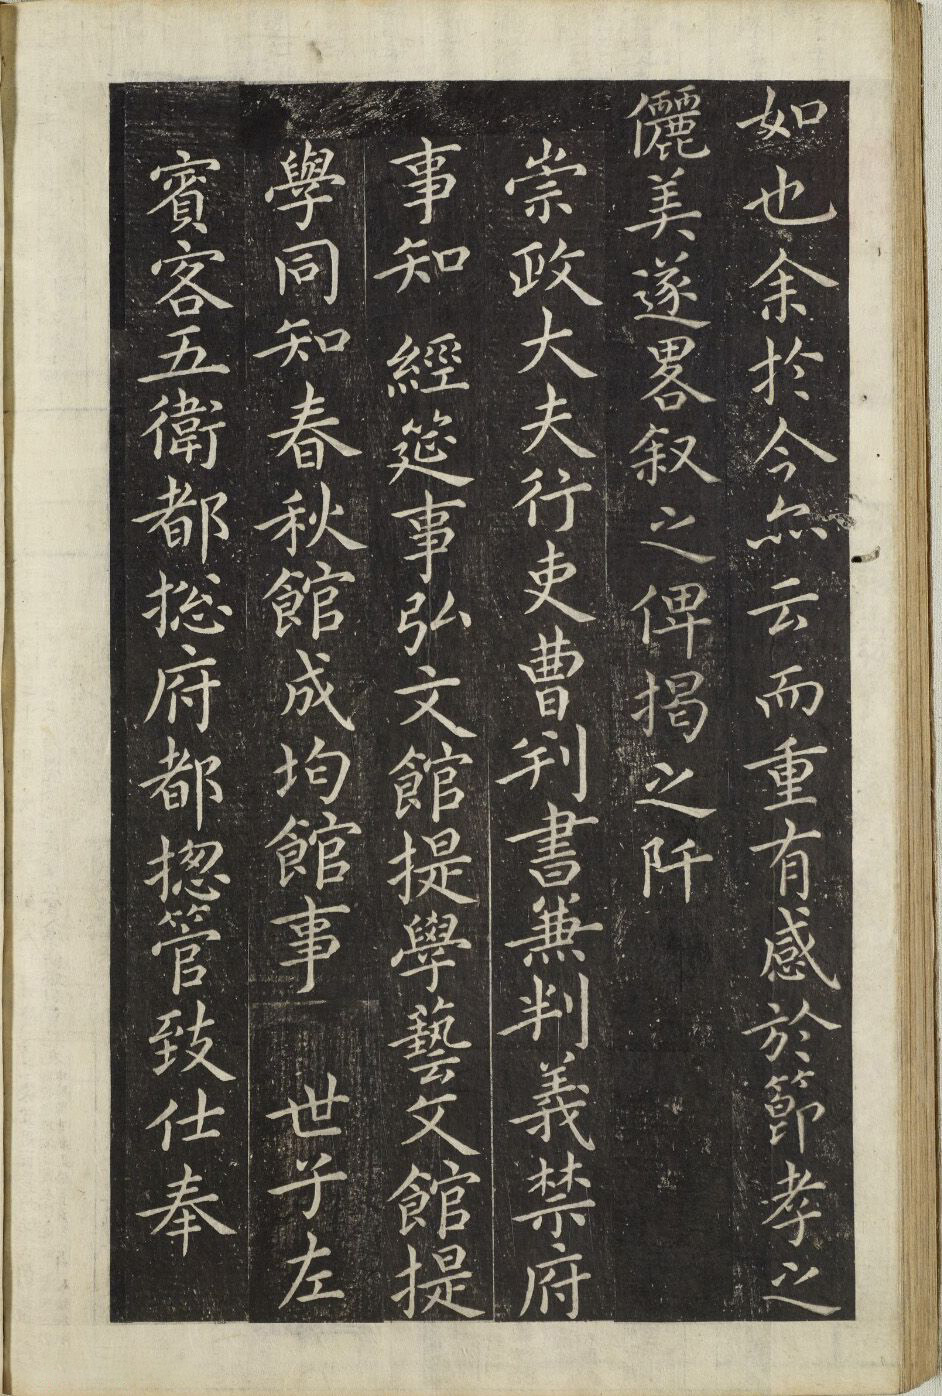 如也余於今亦云而重有感於節孝之
儷美遂畧叙之俾揭之阡
崇政大夫行吏曹判書兼判義禁府
事知 經筵事弘文館提學藝文館提
學同知春秋館成均館事 世子左
賓客五衛都摠府都摠管致仕奉